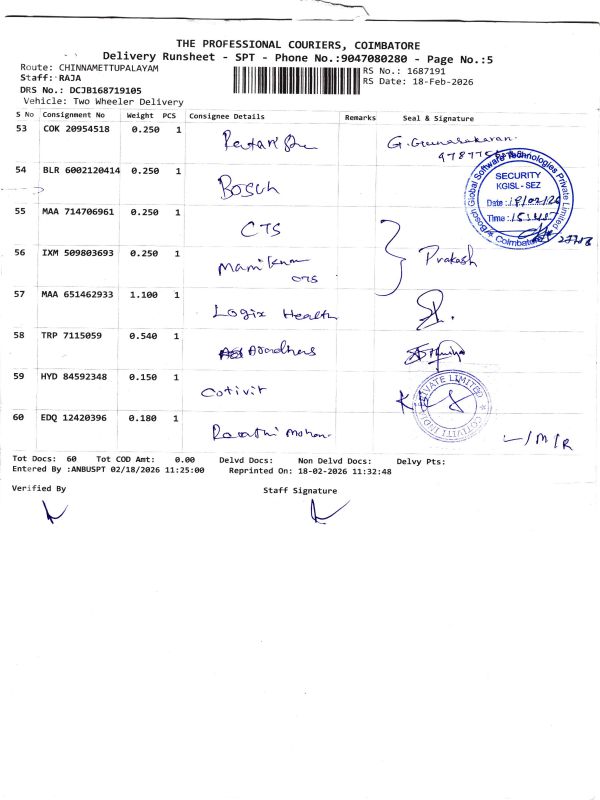 THE PROFESSIONAL COURIERS, COIMBATORE
Delivery Runsheet - SPT - Phone No.:9047080280 - Page No.:5
Route: CHINNAMETTUPALAYAM
Staff: RAJA
DRS No.: DCJB168719105
Vehicle: Two Wheeler Delivery
RS No.: 1687191
RS Date: 18-Feb-2026
S No Consignment No Weight PCS Consignee Details Remarks Seal & Signature
53 COK 20954518 0.250 1 G. Gunasekaran
54 BLR 6002120414 0.250 1 Bosch
Bosch Global Software Technologies Private Limited
SECURITY
KGISL - SEZ
Date :
Time :
Coimbatore
55 MAA 714706961 0.250 1 CTS
56 IXM 509803693 0.250 1 Manikum Prakash
CTS
57 MAA 651462933 1.100 1 Logix Health
58 TRP 7115059 0.540 1
59 HYD 84592348 0.150 1 Cotiviti
PRIVATE LIMITED
COTIVITI INDIA
60 EDQ 12420396 0.180 1 Mohan
Tot Docs: 60 Tot COD Amt: 0.00 Delvd Docs: Non Delvd Docs: Delvy Pts:
Entered By :ANBUSPT 02/18/2026 11:25:00 Reprinted On: 18-02-2026 11:32:48
Verified By Staff Signature